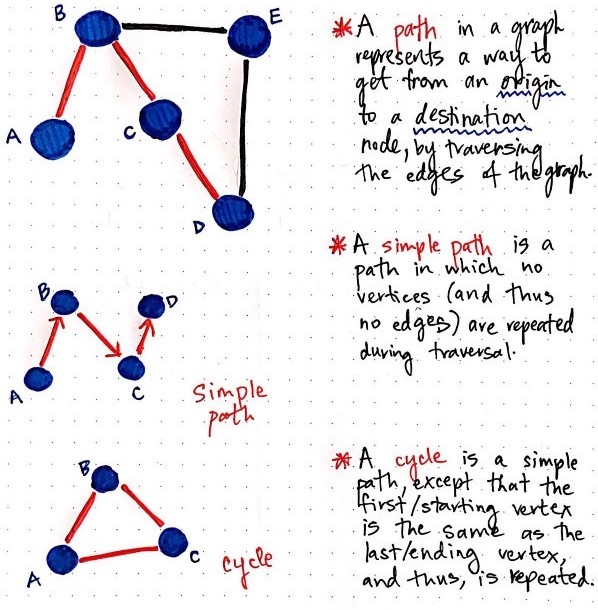 B
E
A
C
D
* A path in a graph
represents a way to
get from an origin
to a destination
node, by traversing
the edges of the graph.
B
D
A
C
Simple
path
* A simple path is a
path in which no
vertices (and thus
no edges) are repeated
during traversal.
B
A
C
cycle
* A cycle is a simple
path, except that the
first/starting vertex
is the same as the
last/ending vertex,
and thus, is repeated.